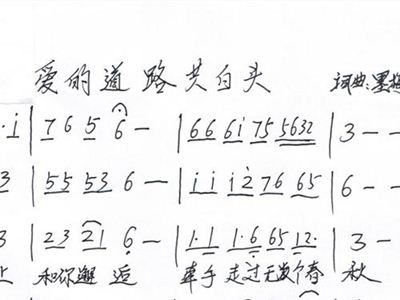 爱的道路共白头
词曲:墨
· i | 7 6 5 6 — | 6 6 6 i 7 5 5 6 3 2 | 3 — —
3 | 5 5 5 3 6 — | i i i 2 7 6 6 5 | 6 — —
3 | 2 3 2 1 6 — | 1 · 1 1 · 6 6 5 1 2 · | 3 —
上 和你邂逅 牵手走过无数个春 秋